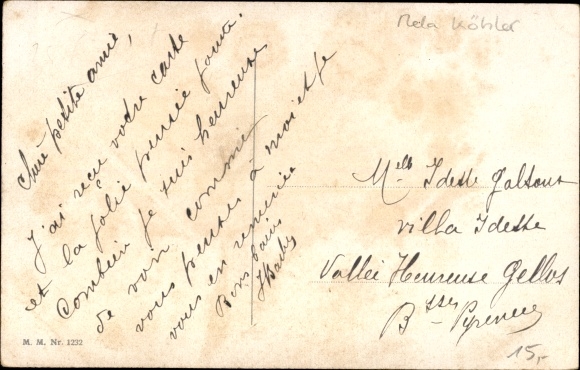 Mela Köhler
Chère petite amie,
J'ai reçu votre carte
et la jolie pensée jointe.
Combien je suis heureuse
de voir comme
vous pensez à moi et je
vous en remercie
Bons baisers
Melle Idette
Villa Idette
Vallée Heureuse Gellos
Bsses Pyrenees
M. M. Nr. 1232
15,-